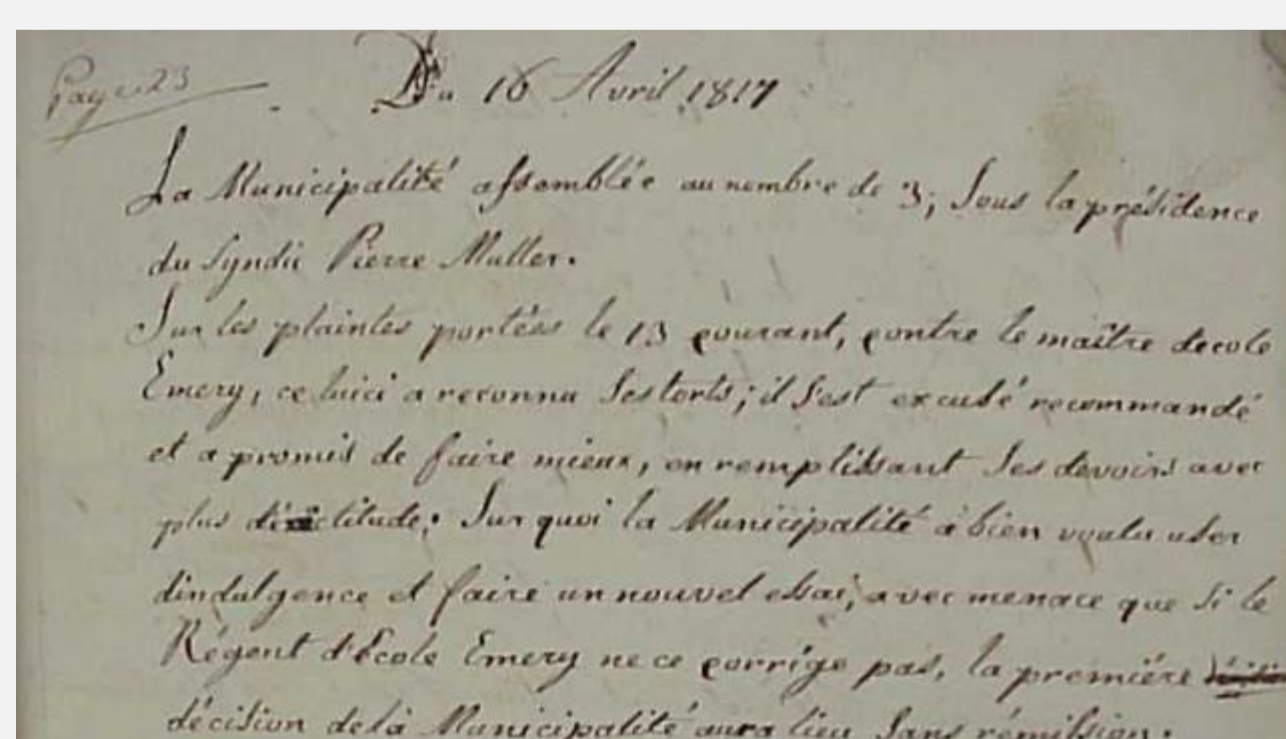 Page 23
Du 16 Avril 1817
La Municipalité assemblée au nombre de 3; Sous la présidence
du Syndic Pierre Muller.
Sur les plaintes portées le 13 courant, contre le maître decole
Emery, celuici a reconnu Ses torts; il S'est excusé recommandé
et a promis de faire mieux, en remplissant Ses devoirs avec
plus dexactitude. Sur quoi la Municipalité à bien voulu user
dindulgence et faire un nouvel essai, avec menace que Si le
Régent d'Ecole Emery ne ce corrige pas, la première
décision dela Municipalité aura lieu Sans rémission.